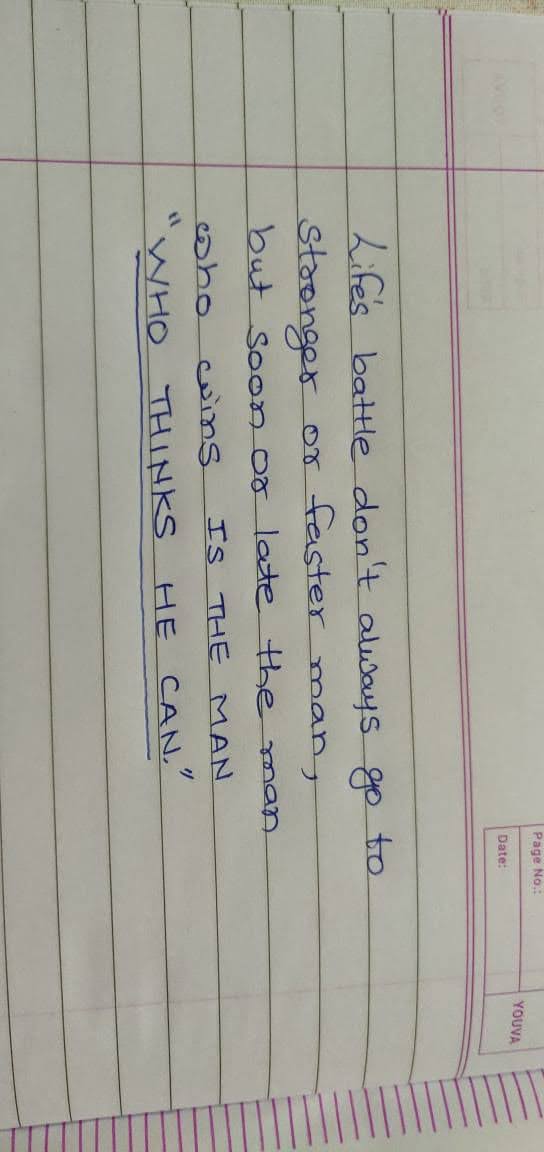 Page No.:
Date:
YOUVA
Life's battle don't always go to
stronger or faster man,
but soon or late the man
who wins IS THE MAN
"WHO THINKS HE CAN."